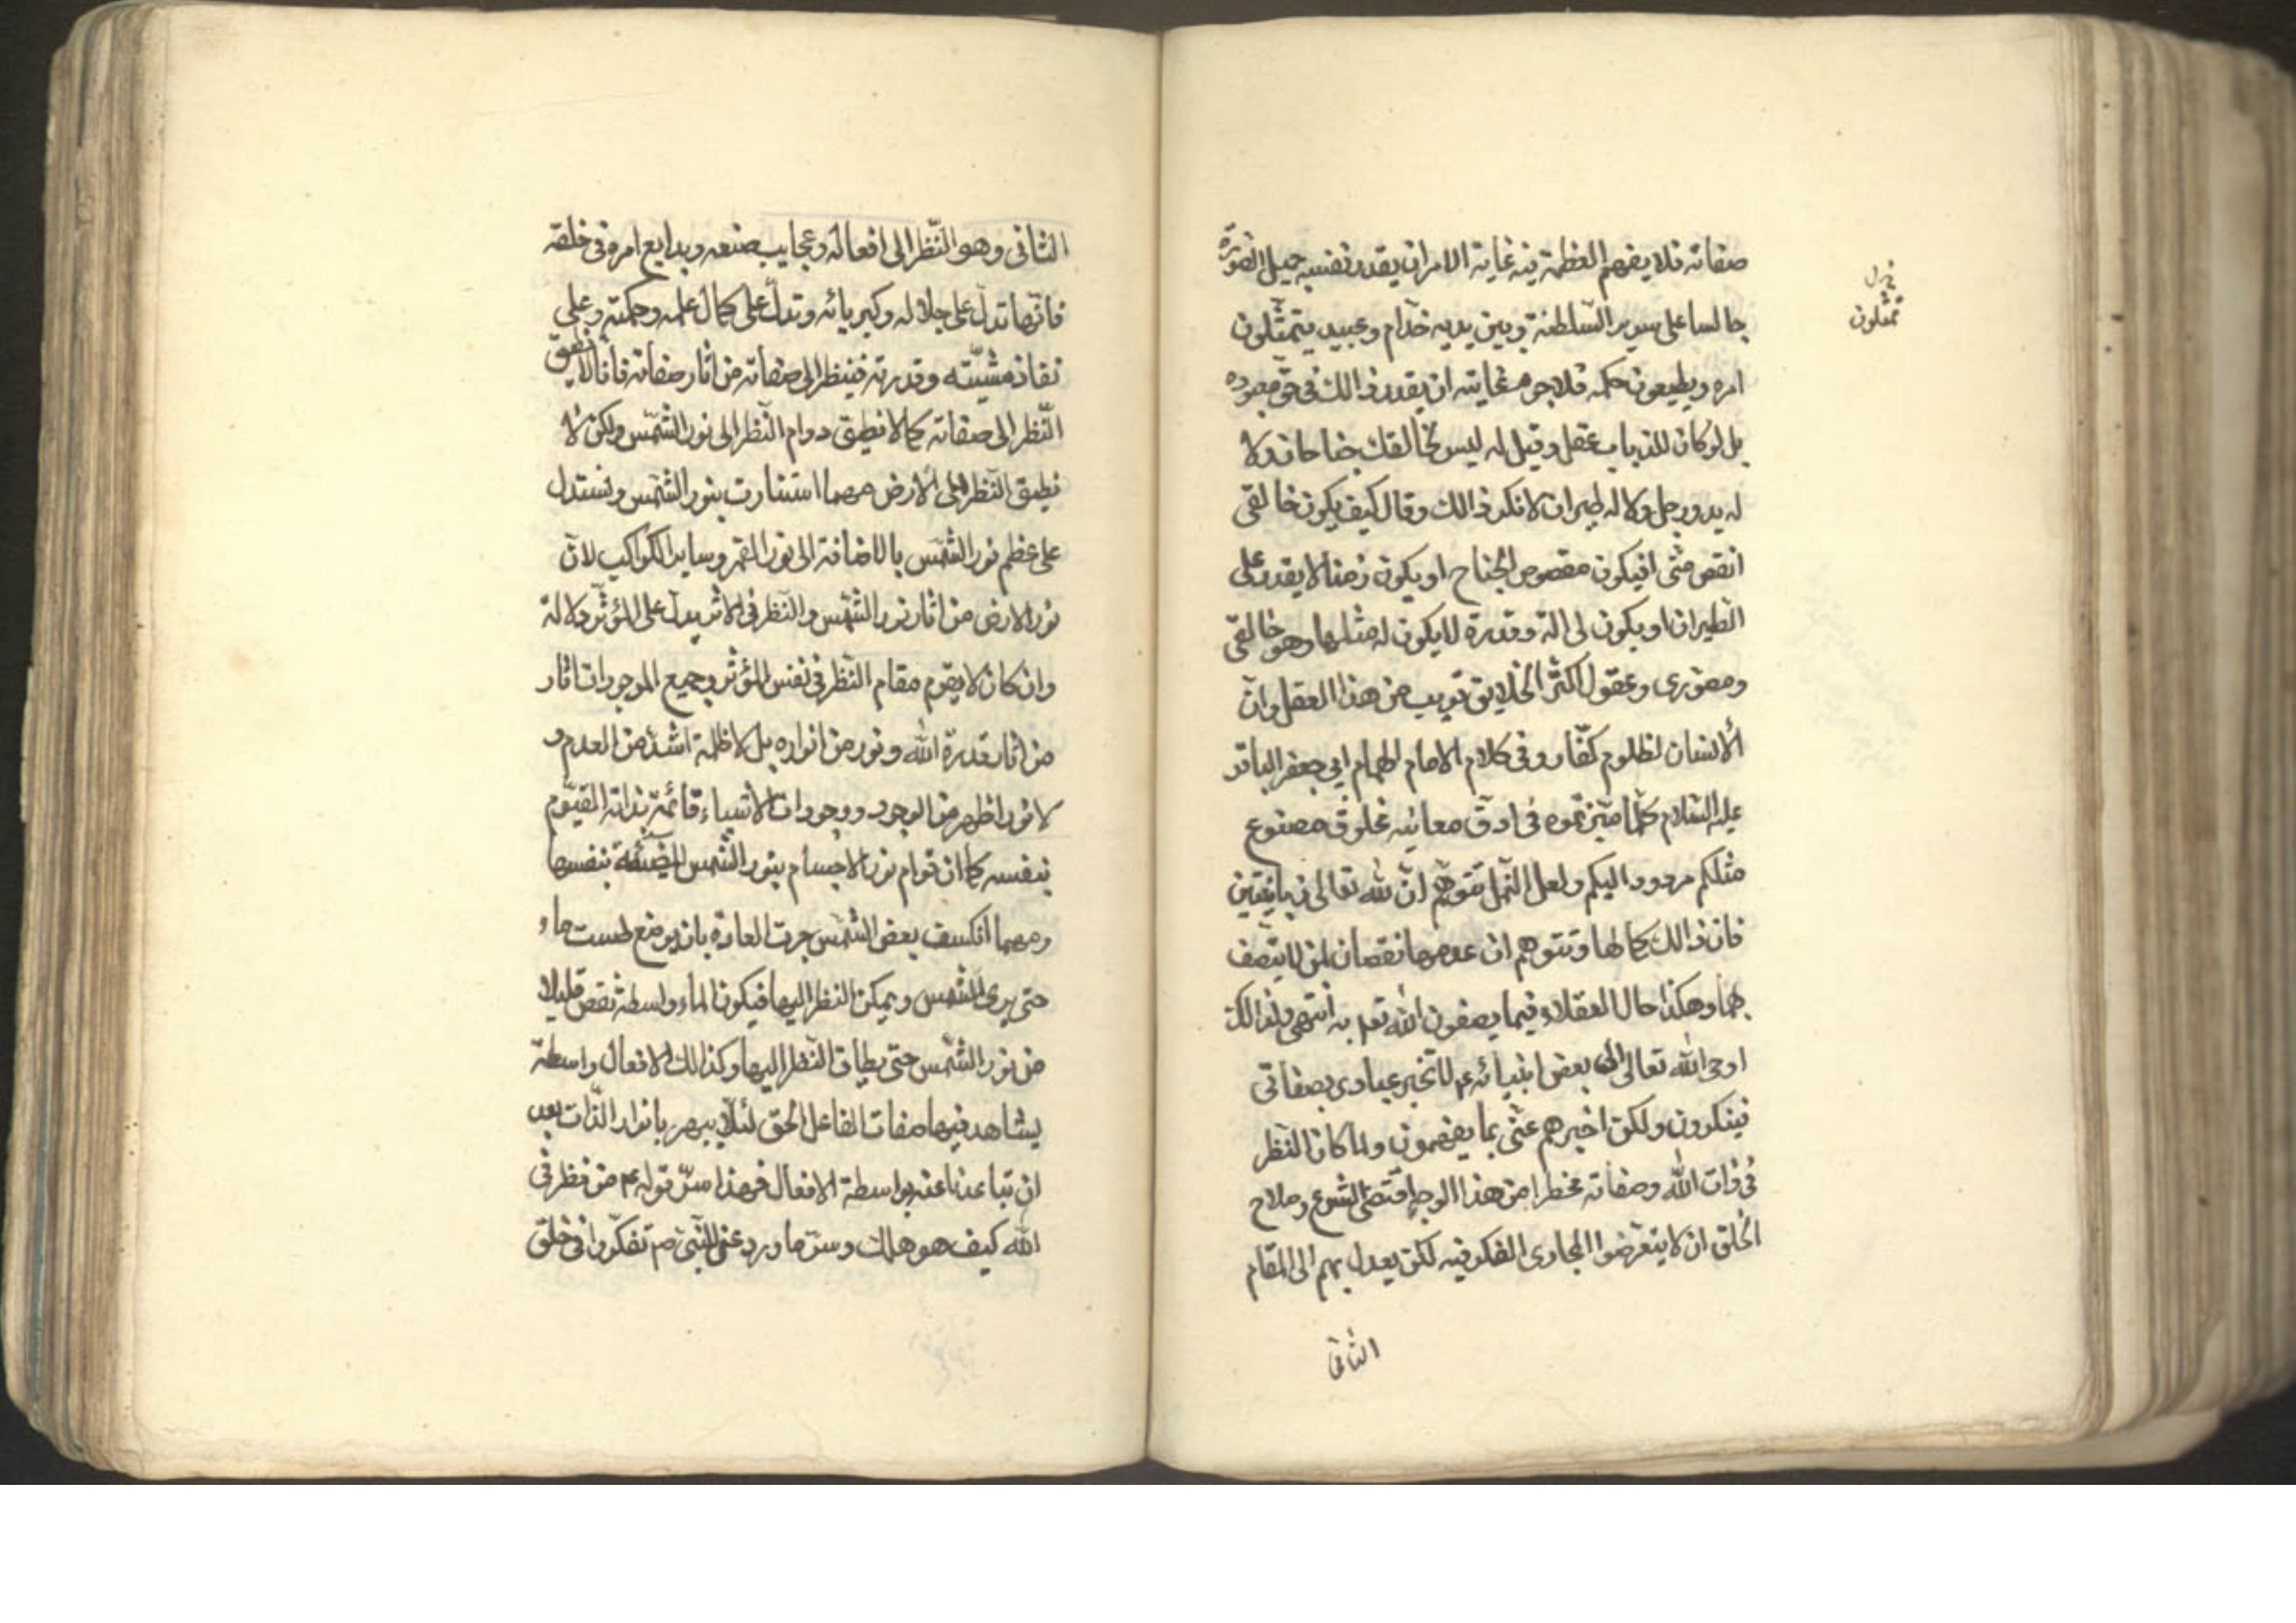 صفاته فلا يفهم العظمة فيه غاية الامر ان يقدر نفسه جميل الصورة
جالسا على سرير السلطنة وبين يديه خدام وعبيد يتمثلون
امره ويطيعون حكمه فلا جرم غايته ان يقدر ذالك فى حق معبوده
بل لو كان للذباب عقل وقيل له ليس لخالقك جناحان ولا
له يد ورجل ولا له طيران لانكر ذالك وقال كيف يكون خالقى
انقص منى افيكون مقصوص الجناح او يكون زمنا لا يقدر على
الطيران او يكون لى الة وقدرة لا يكون له مثلها وهو خالقى
ومصورى وعقول اكثر الخلايق قريب من هذا العقل وان
الانسان لظلوم كفار وفى كلام الامام الهمام ابى جعفر الباقر
عليه السلام كلما ميزتموه فى ادق معانيه مخلوق مصنوع
مثلكم مردود اليكم ولعل النمل تتوهم ان لله تعالى زبانيتين
فان ذالك كمالها وتتوهم ان عدمها نقصان لمن لا يتصف
بهما وهكذا حال العقلاء فيما يصفون الله تعه به انتهى ولذالك
اوحى الله تعالى الى بعض انبيائه عم لا تخبر عبادى بصفاتى
فينكرون ولكن اخبرهم عنى بما يفهمون ولما كان النظر
فى ذات الله وصفاته مخطرا من هذا الوجه اقتضى الشرع وصلاح
الخلق ان لا يتعرضوا لمجارى الفكر فيه لكن يعدل بهم الى المقام
الثانى
يمتثلون
الثانى وهو النظر الى افعاله وعجايب صنعه وبدايع امره فى خلقه
فانها تدل على جلاله وكبريائه وتدل على كمال علمه وحكمته وعلى
نفاذ مشيته وقدرته فينظر الى صفاته من اثار صفاته فانا لا نطيق
النظر الى صفاته كما لا نطيق دوام النظر الى نور الشمس ولكن لا
نطيق النظر الى الارض مهما استنارت بنور الشمس ونستدل
على عظم نور الشمس بالاضافة الى نور القمر وساير الكواكب لان
نور الارض من اثار نور الشمس والنظر فى الاثر يدل على المؤثر دلالة
وان كان لا يقوم مقام النظر فى نفس المؤثر وجميع الموجودات اثار
من اثار قدرة الله ونور من انواره بل لا ظلمة اشد من العدم و
لا نور اظهر من الوجود ووجودات الاشياء قائمة بذاته القيوم
بنفسه كما ان قوام نور الاجسام بنور الشمس المضيئة بنفسها
ومهما انكسف بعض الشمس جرت العادة بان يوضع طست ماء
حتى يرى الشمس ويمكن النظر اليها فيكون الماء واسطة نقص قليلا
من نور الشمس حتى يطاق النظر اليها وكذالك الافعال واسطة
يشاهد فيها صفات الفاعل الحق لئلا يبهر بانوار الذات بعد
ان تباعدنا عنه بواسطة الافعال فهذا سر قوله عم من نظر فى
الله كيف هو هلك وسر ما ورد عن النبى ص تفكروا فى خلق